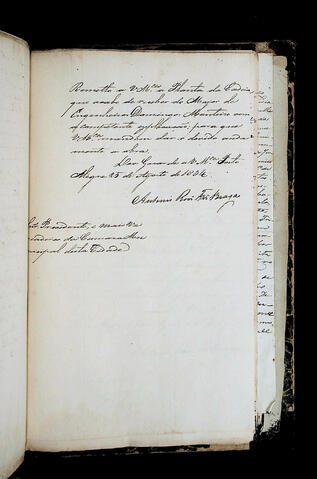 Remetto a V. M.ces a Planta da Cadêa,
que acabo de receber do Major de
Engenheiros Domingos Monteiro com
a competente explicação, para que
V. M.ces mandem dar o devido anda-
mento a obra.
Deos Guarde a V. M.ces Porto
Alegre 25 de Agosto de 1834.
Antonio Roiz Frz Braga
Presidente, e mais Ve-
readores da Camara Mu-
nicipal desta Cidade